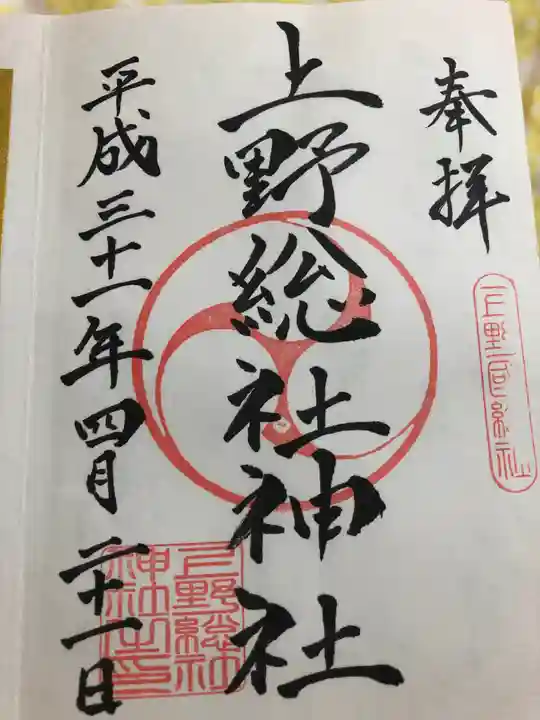 奉拝
上野国総社
上野総社神社
上野総社神社之印
平成三十一年四月二十一日